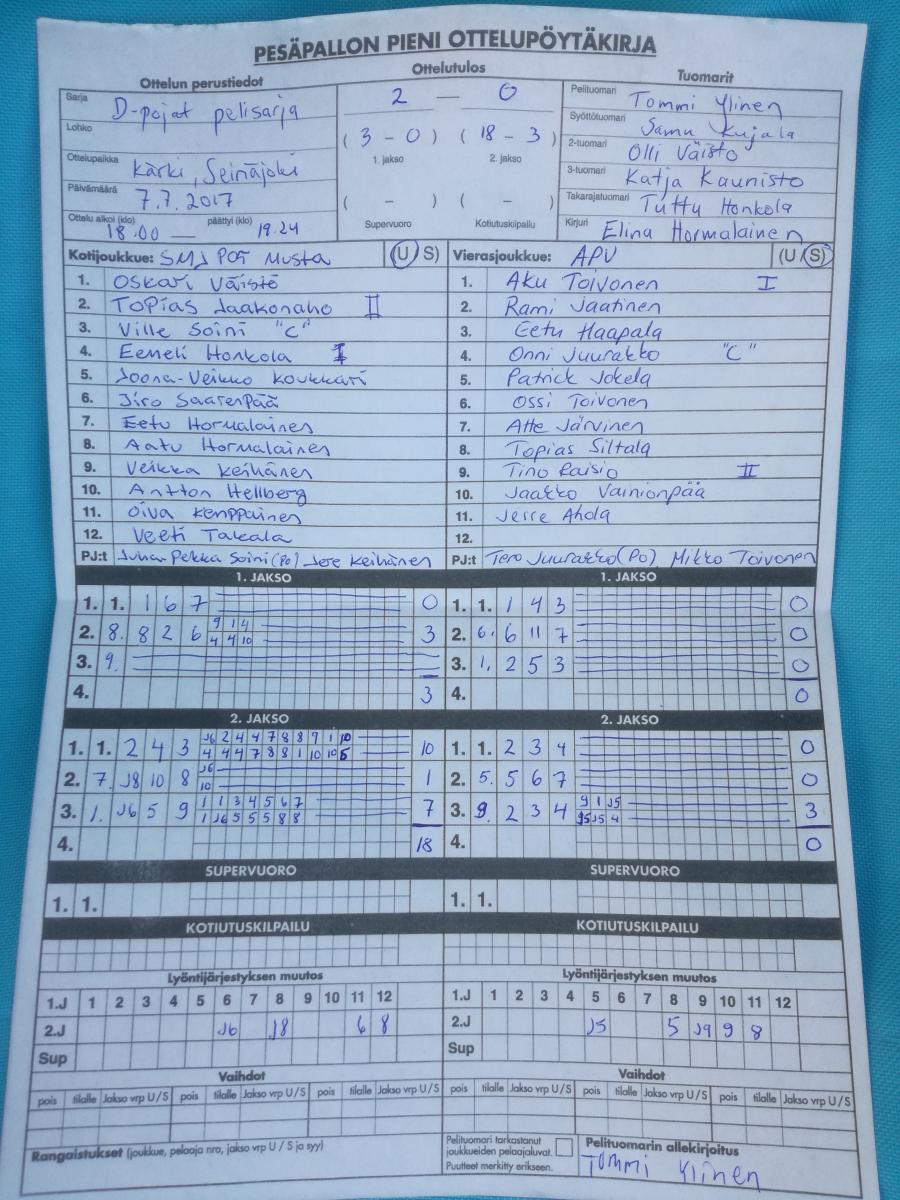 PESÄPALLON PIENI OTTELUPÖYTÄKIRJA
Ottelun perustiedot
Ottelutulos
Tuomarit
Sarja D-pojat pelisarja
Lohko
Ottelupaikka Kärki, Seinäjoki
Päivämäärä 7.7.2017
Ottelu alkoi (klo) 18.00 — päättyi (klo) 19.24
2 — 0
(3 - 0) (18 - 3)
1. jakso 2. jakso
( - ) ( - )
Supervuoro Kotiutuskilpailu
Pelituomari Tommi Ylinen
Syöttötuomari Samu Kujala
2-tuomari Olli Väistö
3-tuomari Katja Kaunisto
Takarajatuomari Tuttu Honkola
Kirjuri Elina Hormalainen
Kotijoukkue: SMJ POJ Musta (U/S)
1. Oskari Väistö
2. Topias Jaakonaho II
3. Ville Soini "C"
4. Eemeli Honkola I
5. Joona-Veikko Koukkari
6. Jiro Saarenpää
7. Eetu Hormalainen
8. Aatu Hormalainen
9. Veikka Keihänen
10. Antton Hellberg
11. Oiva Kemppainen
12. Veeti Takala
PJ:t Juha-Pekka Soini (PO) Jere Keihänen
Vierasjoukkue: APV (U/S)
1. Aku Toivonen I
2. Rami Jaatinen
3. Eetu Haapala
4. Onni Juurakko "C"
5. Patrick Jokela
6. Ossi Toivonen
7. Atte Järvinen
8. Topias Siltala
9. Tino Raisio II
10. Jaakko Vainionpää
11. Jerre Ahola
12.
PJ:t Tero Juurakko (PO) Mikko Toivonen
1. JAKSO
1. 1. 1 6 7 0
2. 8. 8 2 6 9 1 4 3
4 4 10
3. 9.
4. 3
1. JAKSO
1. 1. 1 4 3 0
2. 6. 6 11 7 0
3. 1. 2 5 3 0
4. 0
2. JAKSO
1. 1. 2 4 3 J6 2 4 4 7 8 8 9 1 10 10
4 4 4 7 8 8 1 10 10 5
2. 7. J8 10 8 J6 1
10
3. 1. J6 5 9 1 1 3 4 5 6 7 7
1 J6 5 5 5 8 8
4. 18
2. JAKSO
1. 1. 2 3 4 0
2. 5. 5 6 7 0
3. 9. 2 3 4 9 1 J5 3
J5 4
4. 0
SUPERVUORO
1. 1.
SUPERVUORO
1. 1.
KOTIUTUSKILPAILU
KOTIUTUSKILPAILU
Lyöntijärjestyksen muutos
1.J 1 2 3 4 5 6 7 8 9 10 11 12
2.J J6 J8 6 8
Sup
Lyöntijärjestyksen muutos
1.J 1 2 3 4 5 6 7 8 9 10 11 12
2.J J5 5 J9 9 8
Sup
Vaihdot
pois tilalle Jakso vrp U/S pois tilalle Jakso vrp U/S pois tilalle Jakso vrp U/S
Vaihdot
pois tilalle Jakso vrp U/S pois tilalle Jakso vrp U/S pois tilalle Jakso vrp U/S
Rangaistukset (joukkue, pelaaja nro, jakso vrp U / S ja syy)
Pelituomari tarkastanut
joukkueiden pelaajaluvat.
Puutteet merkitty erikseen.
Pelituomarin allekirjoitus
Tommi Ylinen